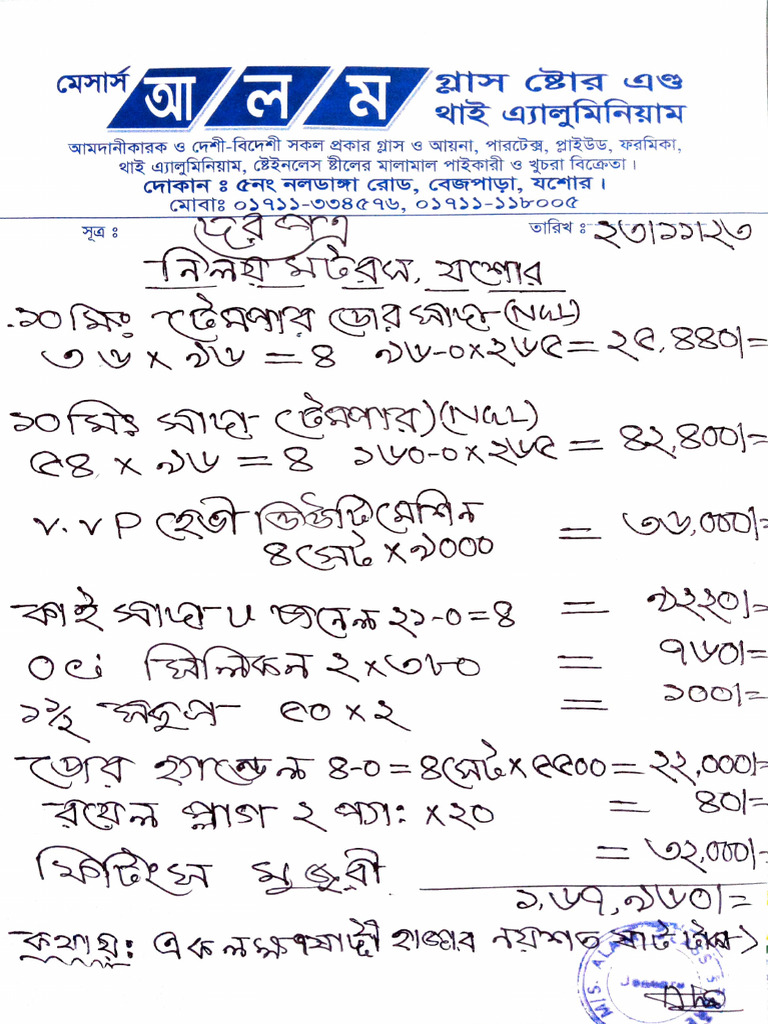 মেসার্স আ ল ম গ্লাস ষ্টোর এণ্ড
থাই এ্যালুমিনিয়াম
আমদানীকারক ও দেশী-বিদেশী সকল প্রকার গ্লাস ও আয়না, পারটেক্স, প্লাইউড, ফরমিকা,
থাই এ্যালুমিনিয়াম, ষ্টেইনলেস ষ্টীলের মালামাল পাইকারী ও খুচরা বিক্রেতা।
দোকান : ৫নং নলডাঙ্গা রোড, বেজপাড়া, যশোর।
মোবাঃ ০১৭১১-৩৩৪৫৭৬, ০১৭১১-১১৮০০৫
সূত্র : দরপত্র তারিখ : ২৩/১১/২৩
নিলয় মটরস, যশোর
১০ মিঃ টেমপার ডোর সাদা (NGL)
৩৬ x ৯৬ = ৪ ৯৬-০x২৬৫ = ২৫,৪৪০/=
১০ মিঃ সাদা (টেমপার) (NGL)
৫৪ x ৯৬ = ৪ ১৬০-০x২৬৫ = ৪২,৪০০/=
V.V P হেভী ডিউটি মেশিন = ৩৬,০০০/=
৪ সেট x ৯০০০
কাই সাদা U চ্যানেল ২১-০=৪ = ৯২২০/=
সিলিকন ২ x ৩৮০ = ৭৬০/=
১½ স্ক্রুপ ৫০ x ২ = ১০০/=
ডোর হ্যান্ডেল ৪-০ = ৪ সেট x ৫৫০০ = ২২,০০০/=
রয়েল প্লাগ ২ প্যা: x ২০ = ৪০/=
ফিটিংস মুজুরী = ৩২,০০০/=
১,৬৭,৯৬০/=
কথায়: এক লক্ষ সাষট্টী হাজার নয়শত ষাট টাকা)
M/S. ALAM GLASS S
Jessore